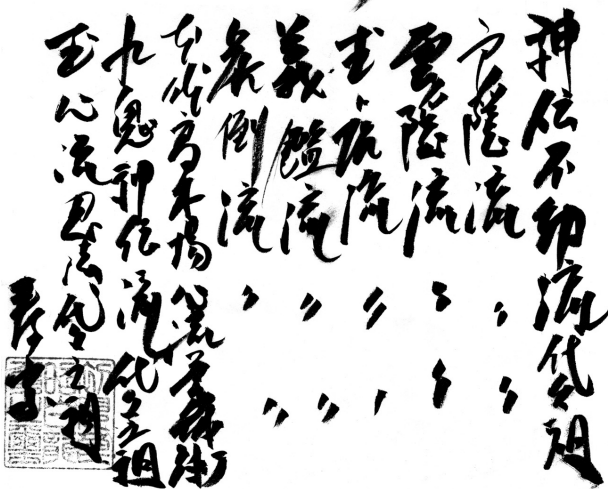 神伝不動流代々祖
戸隠流 〃 〃
雲隠流 〃 〃
玉虎流 〃 〃
義鑑流 〃 〃
虎倒流 〃 〃
本体高木揚心流
九鬼神伝流代々祖
玉心流忍法代々祖